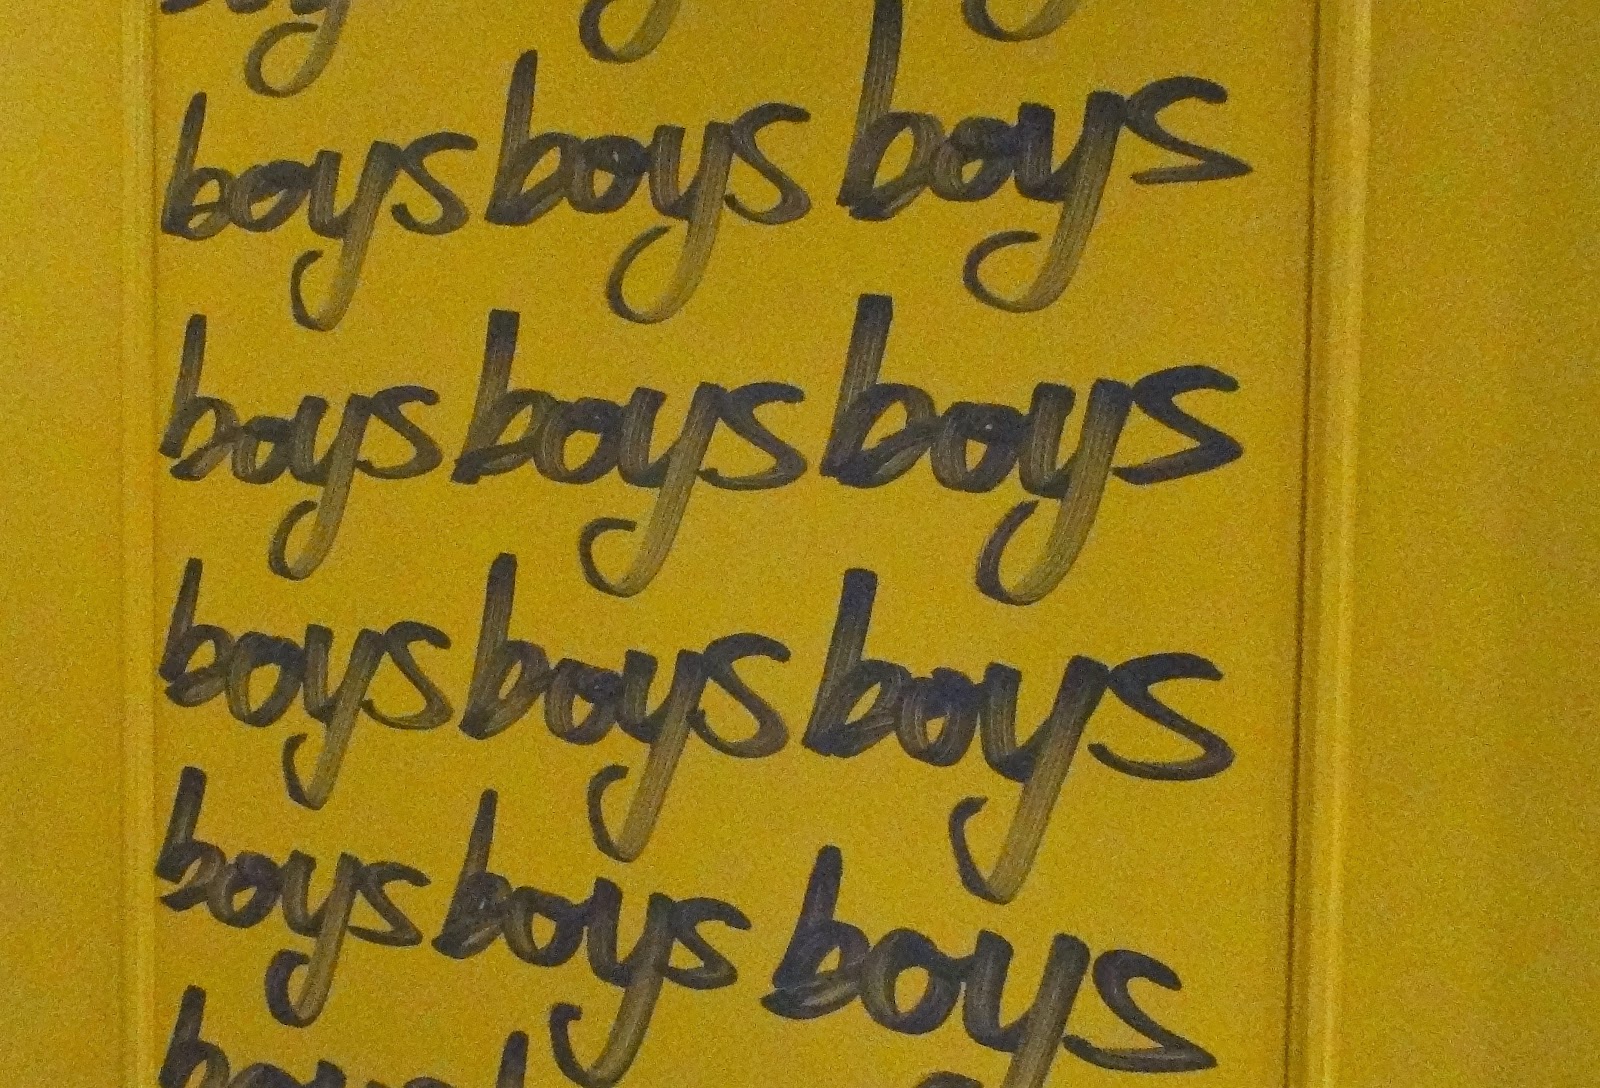 boys boys boys
boys boys boys
boys boys boys
boys boys boys